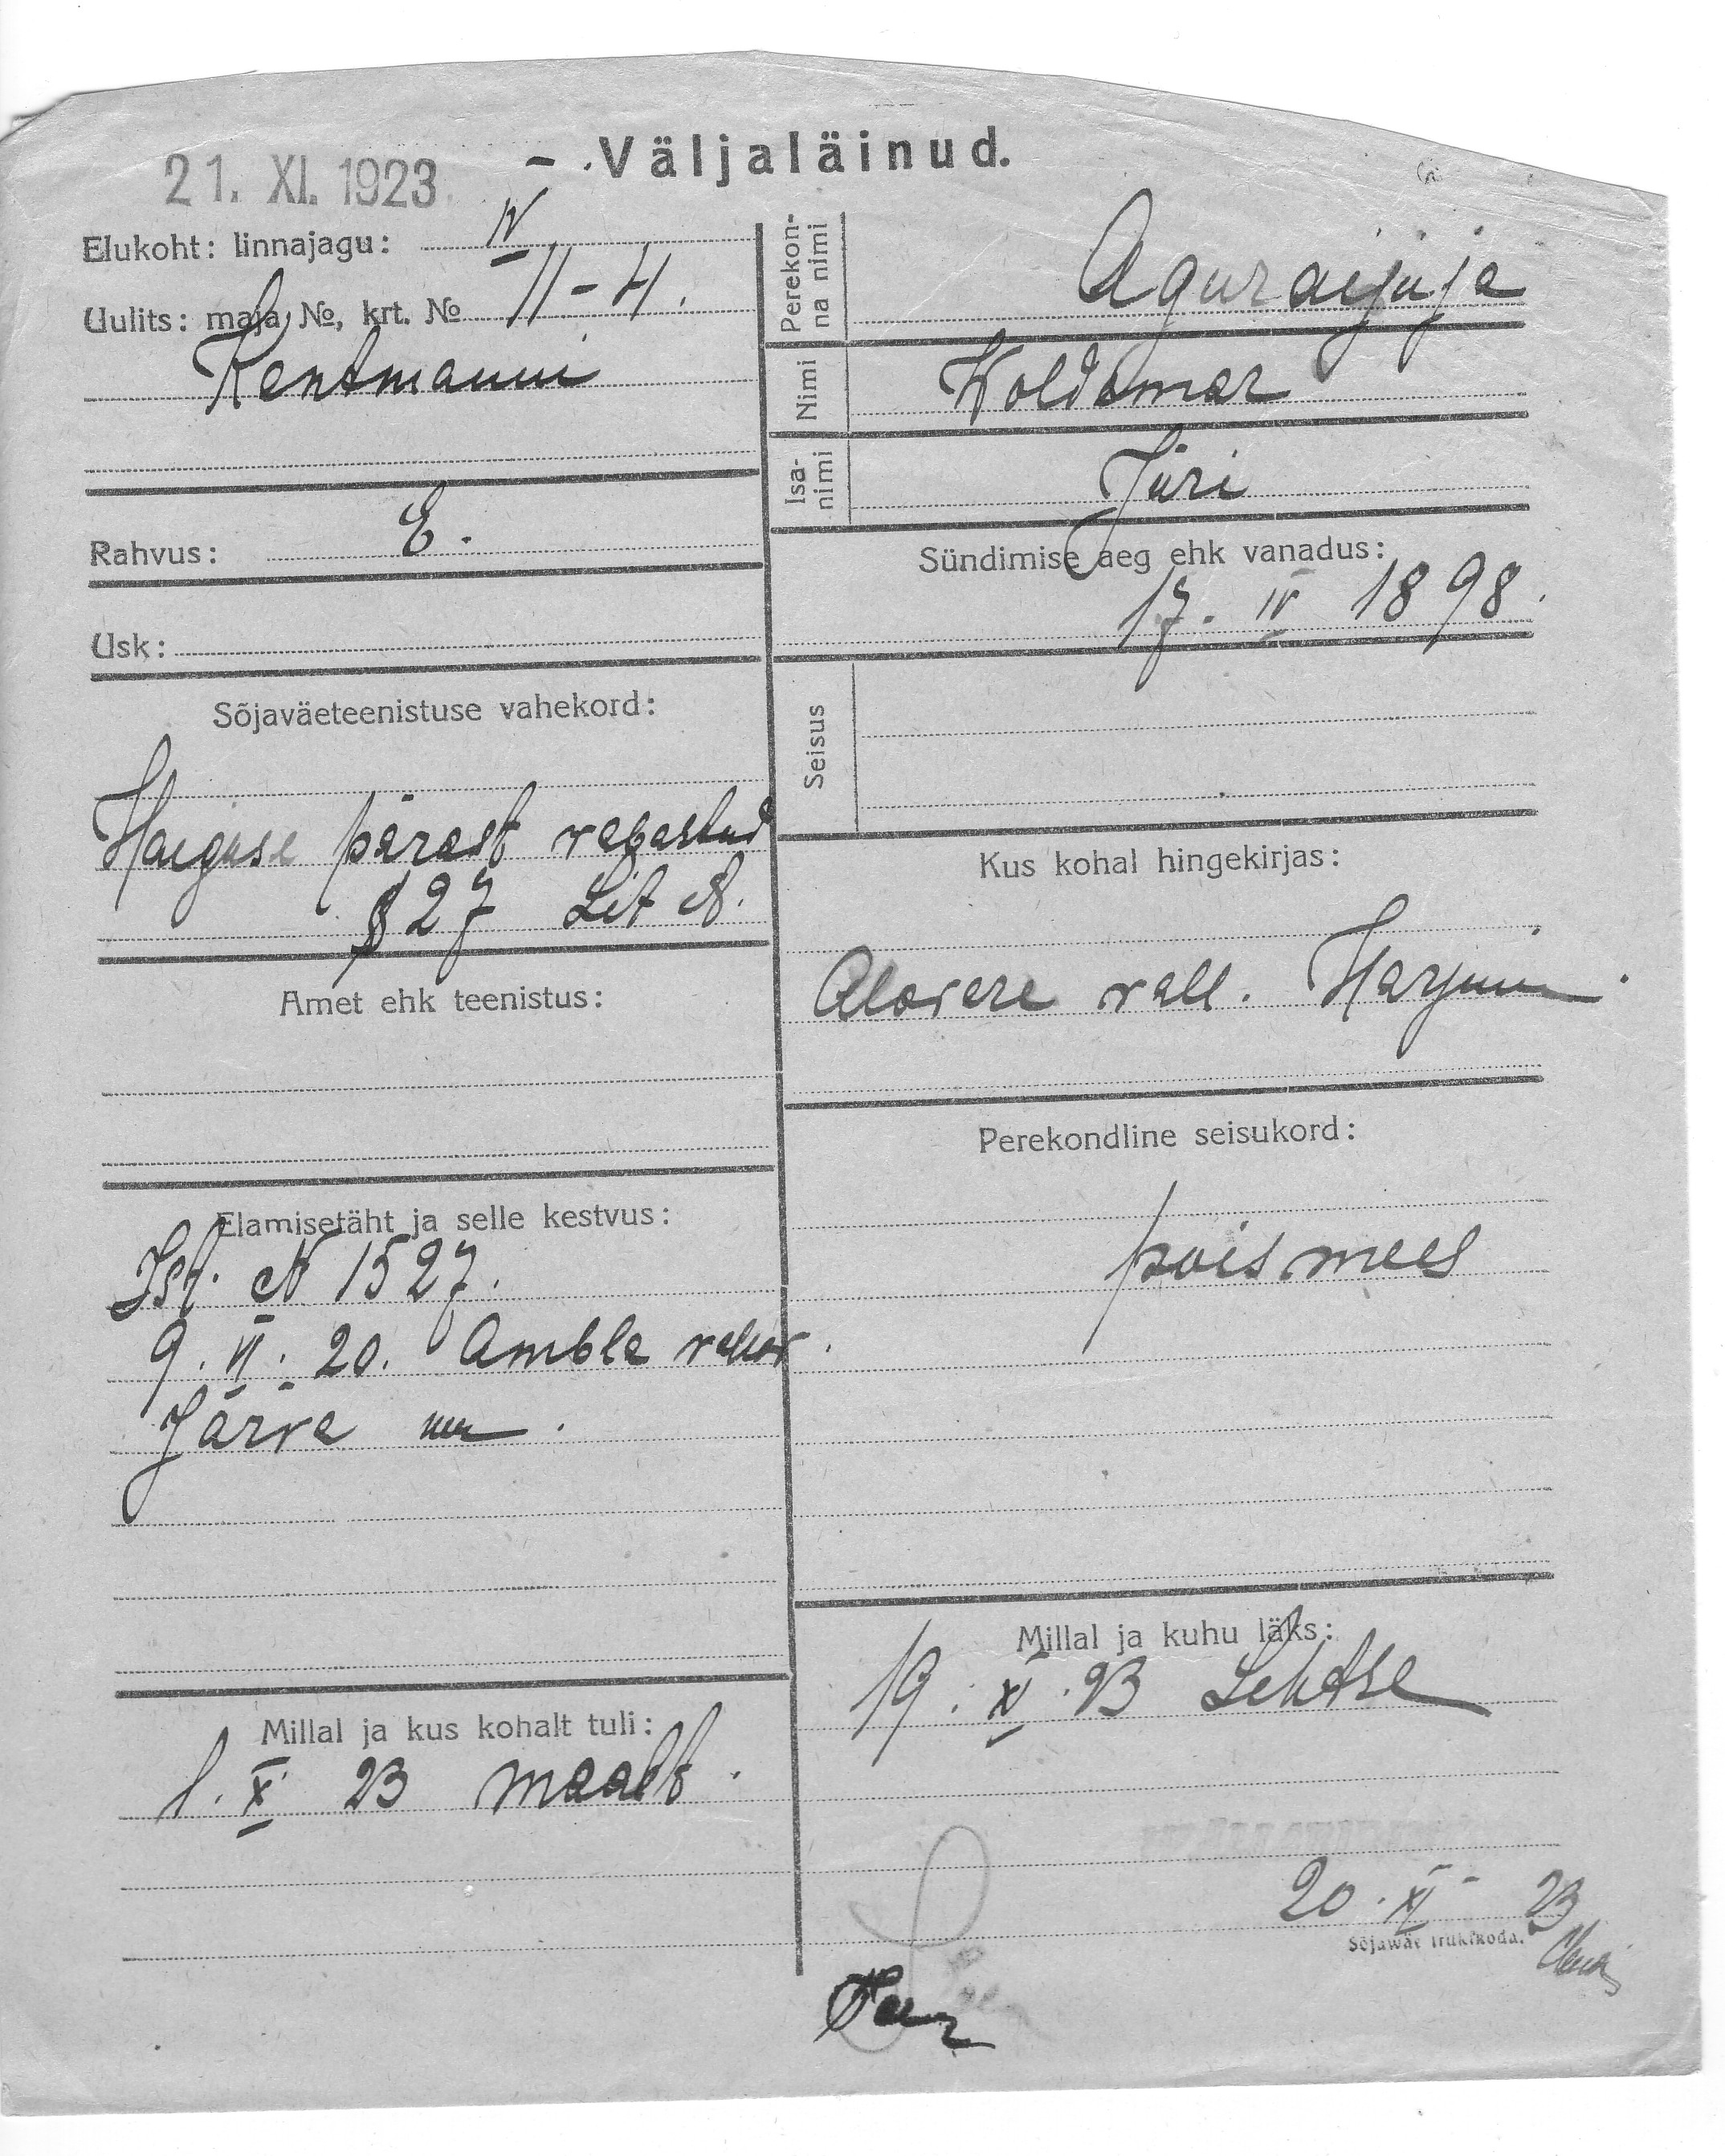 21. XI. 1923
- Väljaläinud.
Elukoht: linnajagu: IV
Uulits: maja №, krt. № 11-4.
Kentmanni
Rahvus: E.
Usk:
Sõjaväeteenistuse vahekord:
Haiguse pärast vabastud
§ 27 Lit A.
Amet ehk teenistus:
Elamisetäht ja selle kestvus:
Ist. N 1527.
9. VI. 20. Ambla
Järva
Millal ja kus kohalt tuli:
1. X 23 maalt.
Perekon-
na nimi
Nimi Woldemar
Isa-
nimi Jüri
Sündimise aeg ehk vanadus:
17. IV 1898.
Seisus
Kus kohal hingekirjas:
Alavere vall. Harjum
Perekondline seisukord:
poismees
Millal ja kuhu läks:
19. XI. 23 Lehtse
20. XI 23
Sõjawäe trükikoda.